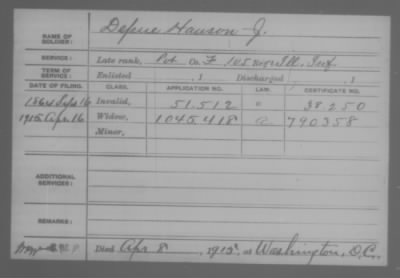 NAME OF SOLDIER: Depue Hanson J.
SERVICE: Late rank, Pvt Co. F, 105 Ill. Inf
TERM OF SERVICE: Enlisted , 1 Discharged , 1
DATE OF FILING. CLASS. APPLICATION NO. LAW. CERTIFICATE NO.
1864 Sep 16 Invalid, 51.512 38.250
1915 Apr 16 Widow, 1045418 790358
Minor,
ADDITIONAL SERVICES:
REMARKS:
Died Apr 8, 1915, at Washington, D.C.